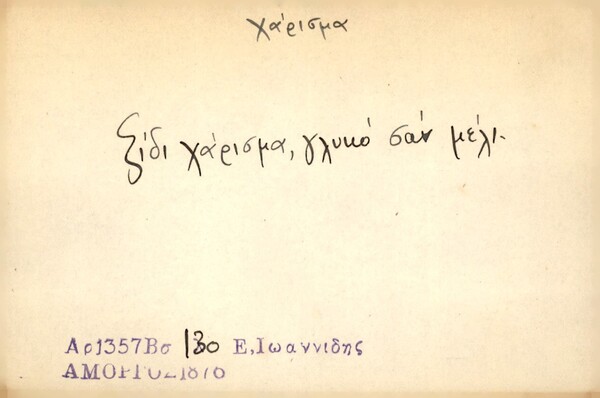 χάρισμα
ξίδι χάρισμα, γλυκό σάν μέλι.
Αρ1357Βσ 130 Ε,Ιωαννιδης
ΑΜΟΡΓΟΣ1876